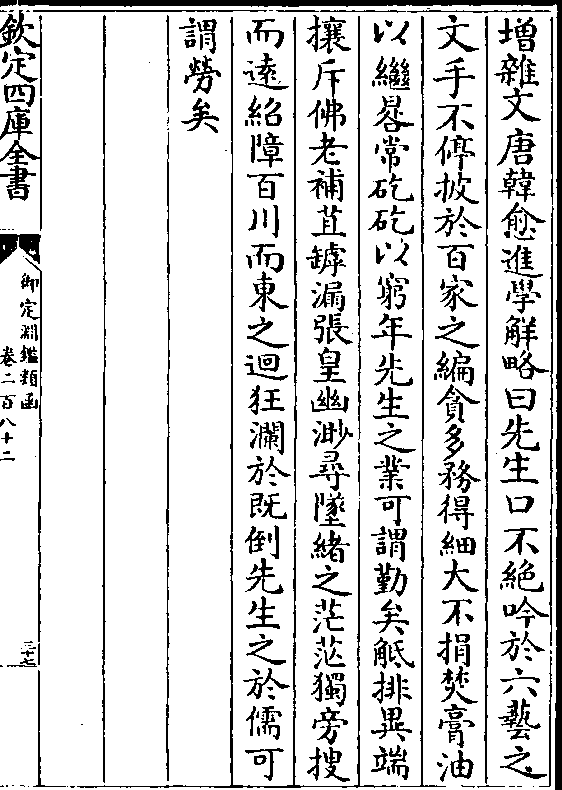 增雜文唐韓愈進學解略曰先生口不絶吟於六藝之
文手不停披於百家之編貪多務得細大不捐焚膏油
以繼晷常矻矻以窮年先生之業可謂勤矣觝排異端
攘斥佛老補苴罅漏張皇幽渺尋墜緒之茫茫獨旁搜
而逺紹障百川而東之迴狂瀾於既倒先生之於儒可
謂勞矣
欽定四庫全書
御定淵鑑類函
卷二百八十二
三十七